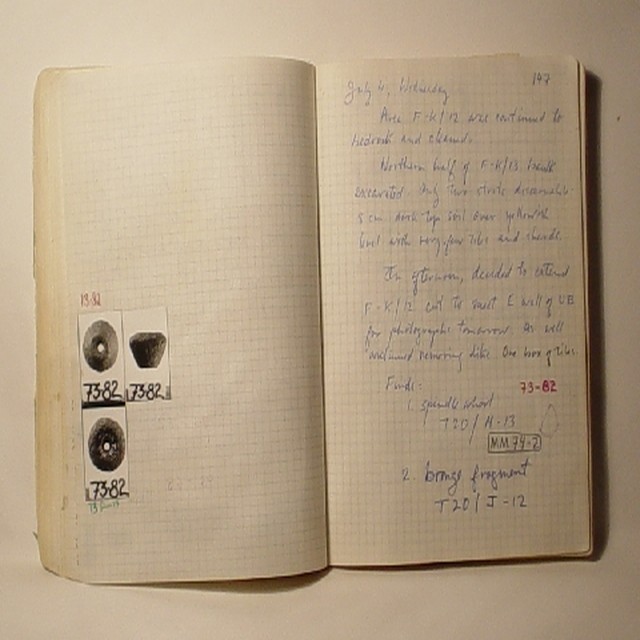 73-82
73-82
73-82
73-82
147
July 4, Wednesday
Area F-K/12 was continued to
bedrock and cleaned.
Northern half of F-K/13
excavated. Only two strata discernable
5 cm dark top soil over yellowish
level with very few tiles and sherds.
In afternoon, decided to extend
F-K/12 east to meet E wall of UB
for photographs tomorrow. As well
removing dike. One box of tiles.
Finds:
73-82
1. spindle whorl
T20/H-13
MM 74-2
2. bronze fragment
T20/J-12